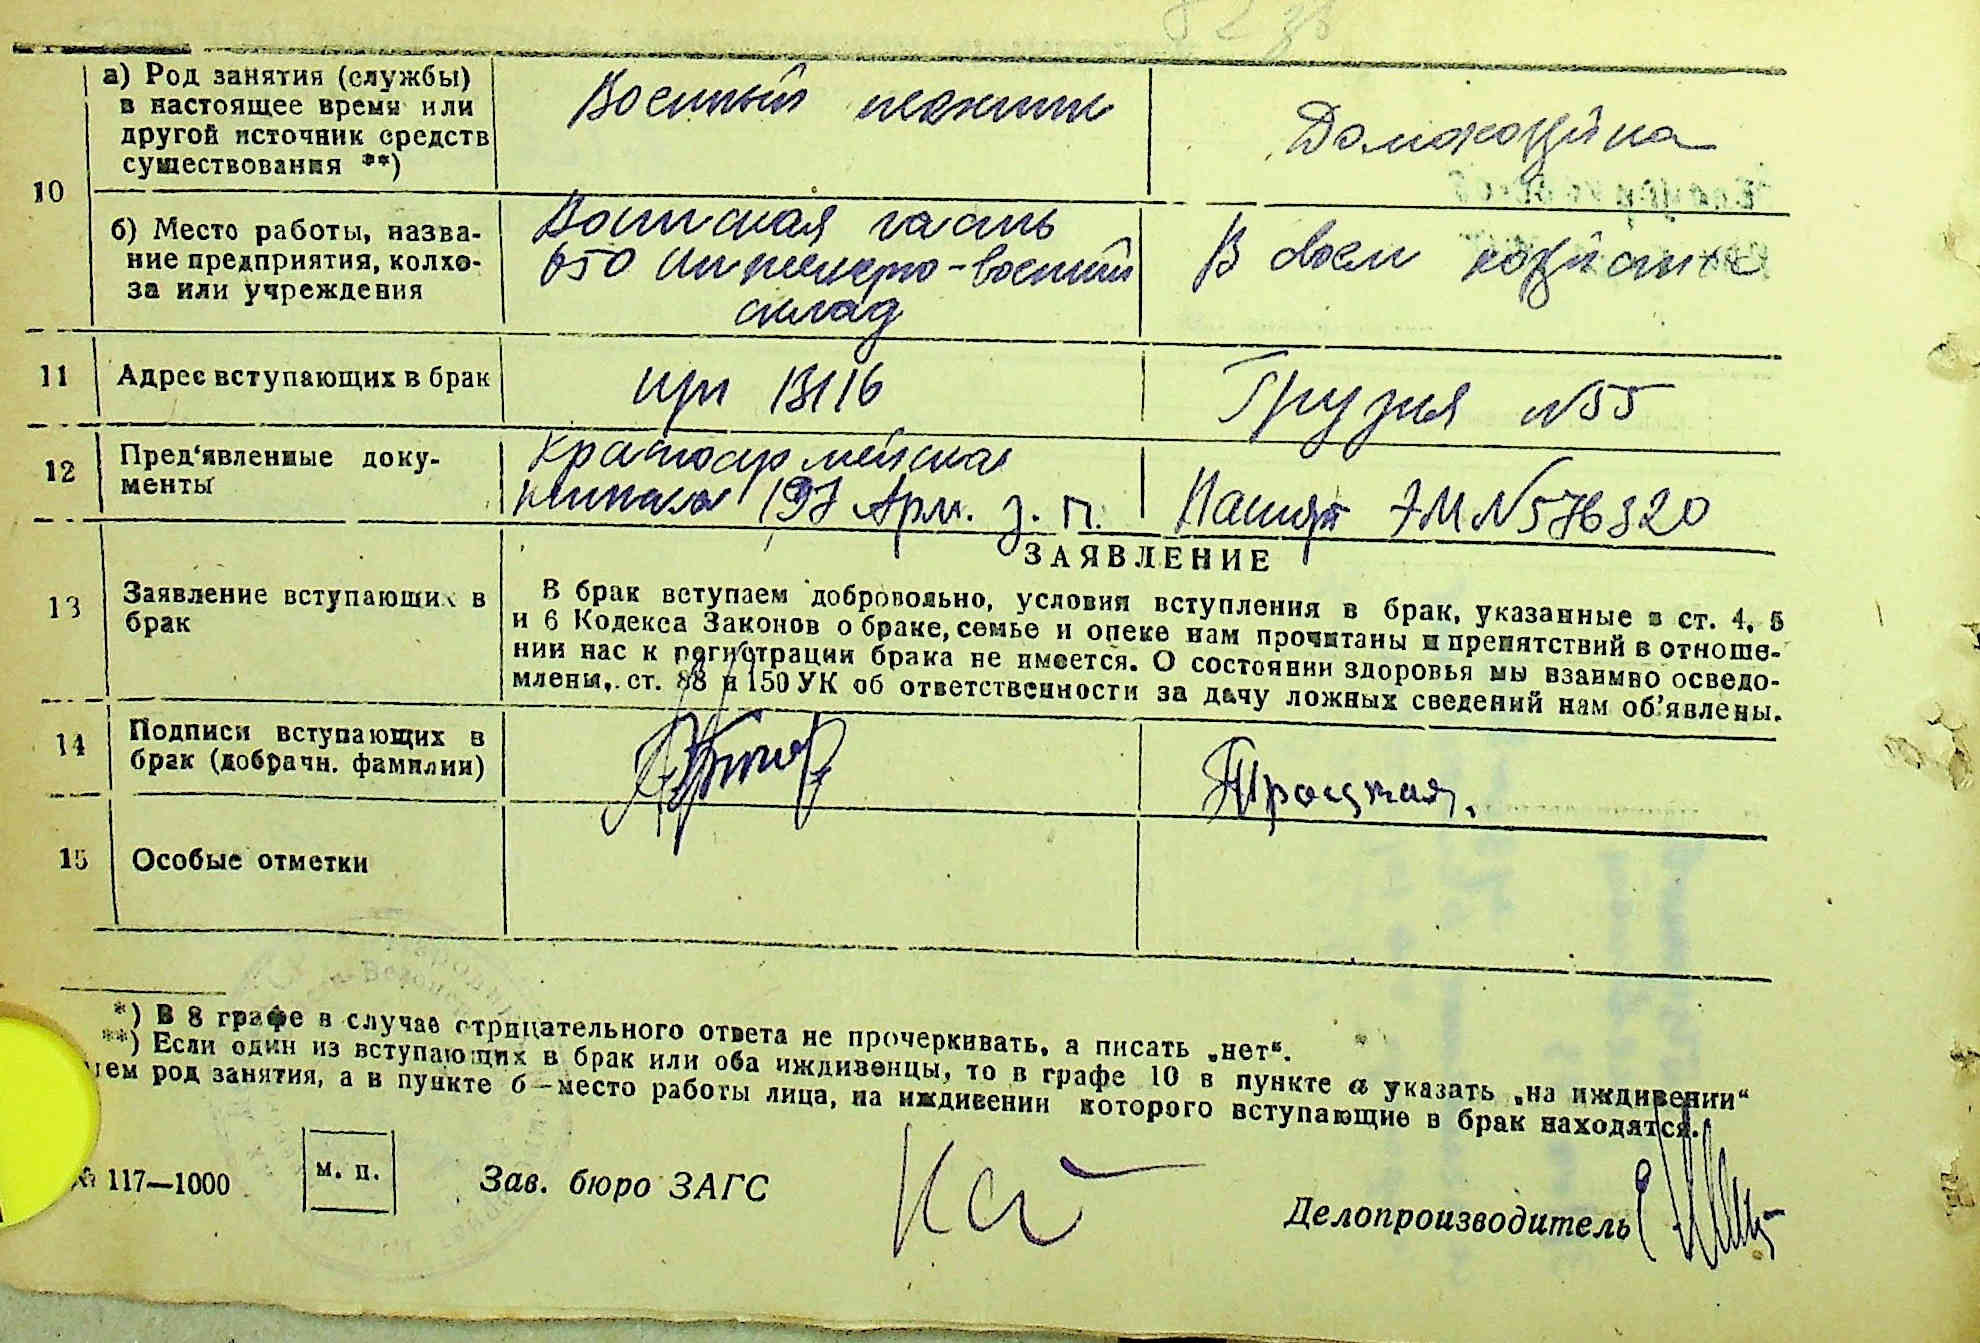 а) Род занятия (службы)
в настоящее время или
другой источник средств
существования **)
Военный техник
Домохозяйка
10
б) Место работы, назва-
ние предприятия, колхо-
за или учреждения
Воинская часть
650 Инженерно-военный
склад
В своем хозяйстве
11
Адрес вступающих в брак
13116
Грузия №55
12
Пред'явленные доку-
менты
Красноармейская
книжка 197 Арм. з. п.
Паспорт 7М №576320
ЗАЯВЛЕНИЕ
13
Заявление вступающих в
брак
В брак вступаем добровольно, условия вступления в брак, указанные в ст. 4, 5
и 6 Кодекса Законов о браке, семье и опеке нам прочитаны и препятствий в отноше-
нии нас к регистрации брака не имеется. О состоянии здоровья мы взаимно осведо-
млены, ст. 88 и 150 УК об ответственности за дачу ложных сведений нам об'явлены.
14
Подписи вступающих в
брак (добрачн. фамилии)
Троцкая.
15
Особые отметки
*) В 8 графе в случае отрицательного ответа не прочеркивать, а писать „нет“.
**) Если один из вступающих в брак или оба иждивенцы, то в графе 10 в пункте а указать „на иждивении“
чем род занятия, а в пункте б—место работы лица, на иждивении которого вступающие в брак находятся.
№ 117—1000
м. п.
Зав. бюро ЗАГС
Делопроизводитель